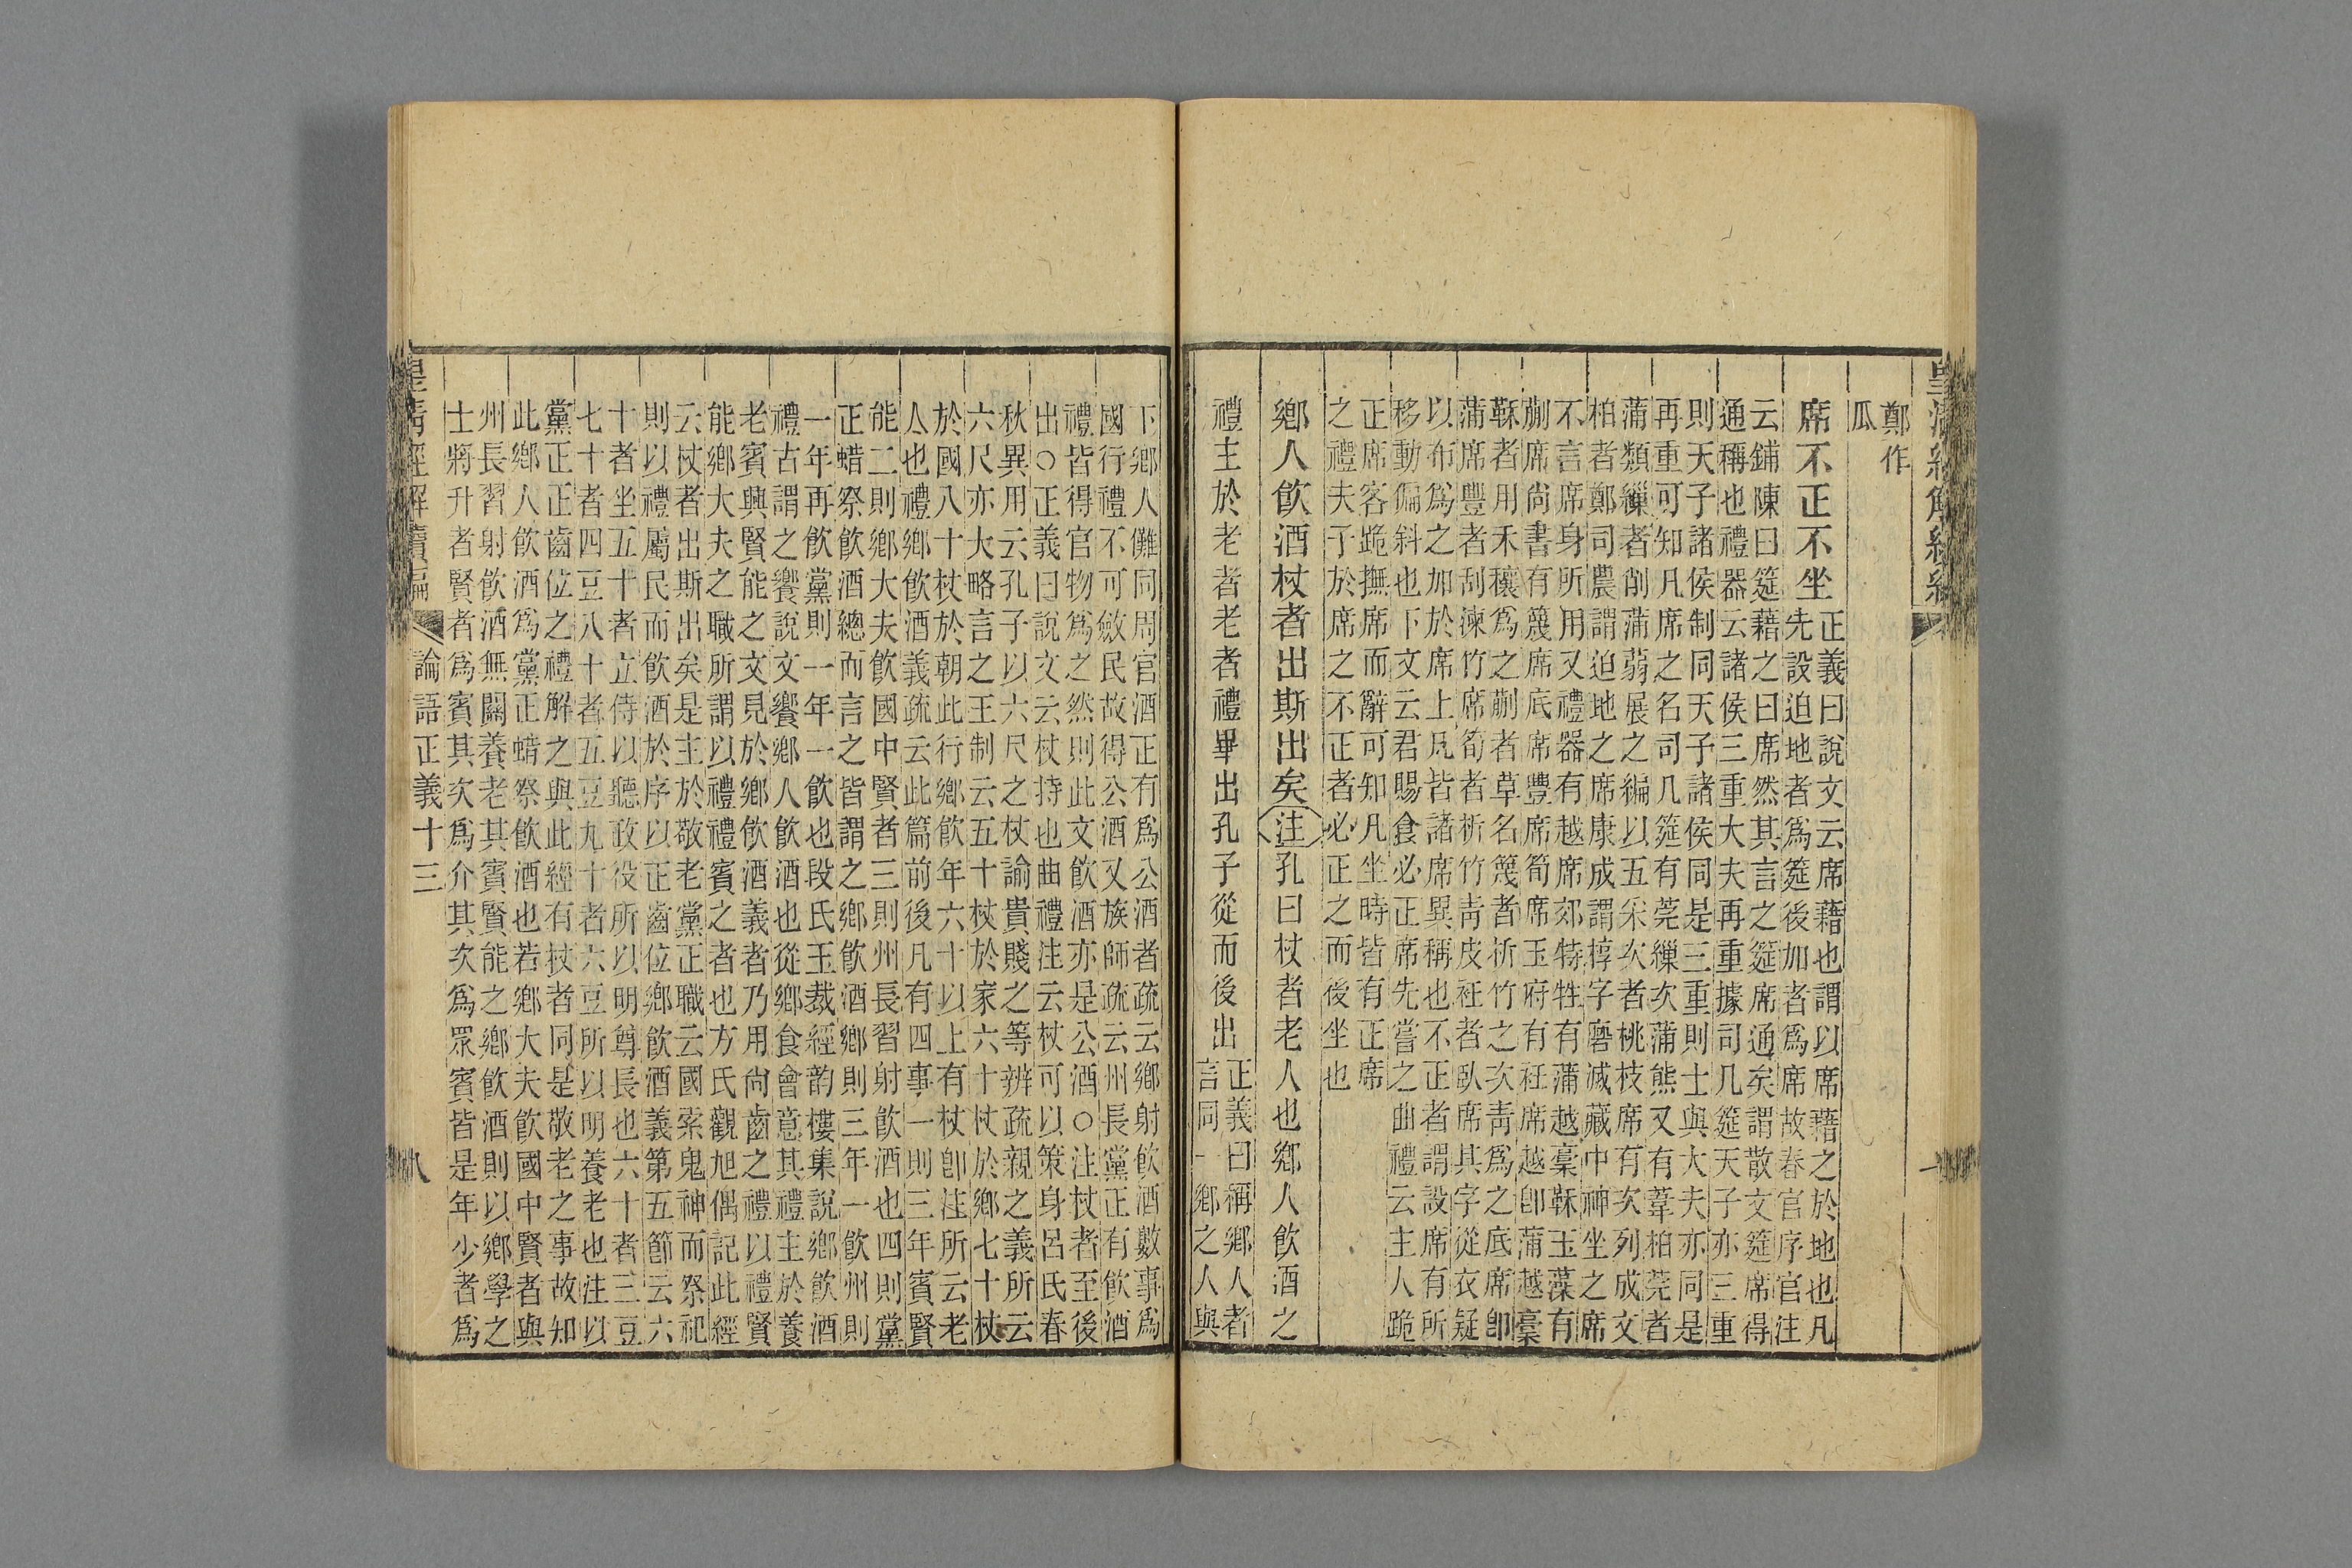 鄭作
瓜
席不正不坐正義曰說文云席藉也謂以席藉之於地也凡
先設迫地者爲筵後加者爲席故春官序官注
云鋪陳曰筵藉之曰席然其言之筵席通矣謂散文筵席得
通稱也禮器云諸侯三重大夫再重據司几筵天子亦三重
則天子諸侯制同天子諸侯同是三重則士與大夫亦同是
再重可知凡席之名司几筵有莞繅次蒲熊又有葦柏莞者
蒲類繅者削蒲蒻展之編以五采次者桃枝席有次列成文
柏者鄭司農謂迫地之席康成謂椁字磨滅藏中神坐之席
不言席身所用又禮器有越席郊特牲有蒲越稾鞂玉藻有
蒯席尙書有篾席底席豐席筍席玉府有衽席越卽蒲越稾
鞂者用禾穰爲之蒯者草名篾者析竹之次靑爲之底席卽
蒲席豐者刮湅竹席筍者析竹靑皮衽者臥席其字從衣疑
以布爲之加於席上凡皆諸席異稱也不正者謂設席有所
移動偏斜也下文云君賜食必正席先嘗之曲禮云主人跪
正席客跪撫席而辭可知凡坐時皆有正席
之禮夫子於席之不正者必正之而後坐也
鄉人飮酒杖者出斯出矣注孔曰杖者老人也鄉人飮酒之
禮主於老者老者禮畢出孔子從而後出正義曰稱鄉人者
言同一鄉之人與
下鄉人儺同周官酒正有爲公酒者疏云鄉射飮酒數事爲
國行禮不可斂民故得公酒又族師疏云州長黨正有飮酒
禮皆得官物爲之然則此文飮酒亦是公酒○注杖者至後
出○正義曰說文云杖持也曲禮注云杖可以策身呂氏春
秋異用云孔子以六尺之杖諭貴賤之等辨疏親之義所云
六尺亦大略言之王制云五十杖於家六十杖於鄉七十杖
於國八十杖於朝此行鄉飮年六十以上有杖卽注所云老
人也禮鄉飮酒義疏云此篇前後凡有四事一則三年賓賢
能二則鄉大夫飮國中賢者三則州長習射飮酒也四則黨
正蜡祭飮酒總而言之皆謂之鄉飮酒鄉則三年一飮州則
一年再飮黨則一年一飮也段氏玉裁經韵樓集說鄉飮酒
禮古謂之饗說文饗鄉人飮酒也從鄉食會意其禮主於養
老賓興賢能之文見於鄉飮酒義者乃用尙齒之禮以禮賢
能鄉大夫之職所謂以禮禮賓之者也方氏觀旭偶記此經
云杖者出斯出矣是主於敬老黨正職云國索鬼神而祭祀
則以禮屬民而飮酒於序以正齒位鄉飮酒義第五節云六
十者坐五十者立侍以聽政役所以明尊長也六十者三豆
七十者四豆八十者五豆九十者六豆所以明養老也注以
黨正正齒位之禮解之與此經有杖者同是敬老之事故知
此鄉人飮酒爲黨正蜡祭飮酒也若鄉大夫飮國中賢者與
州長習射飮酒無關養老其賓賢能之鄉飮酒則以鄉學之
士將升者賢者爲賓其次爲介其次爲眾賓皆是年少者爲
皇淸經解續編 論語正義十三 八